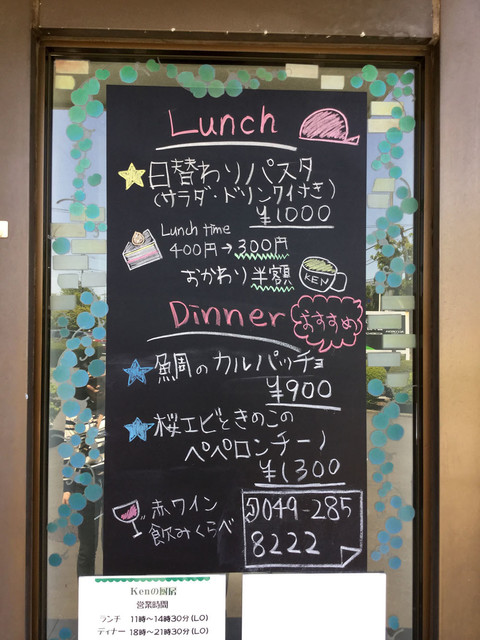 Lunch
日替わりパスタ
(サラダ・ドリンク付き)
¥1000
Lunch time
400円→300円
おかわり半額
KEN
Dinner
おすすめ
鯛のカルパッチョ
¥900
桜エビときのこの
ペペロンチーノ
¥1300
赤ワイン
飲みくらべ
049-285
8222
Kenの厨房
営業時間
ランチ 11時〜14時30分(L.O)
ディナー 18時〜21時30分(L.O)